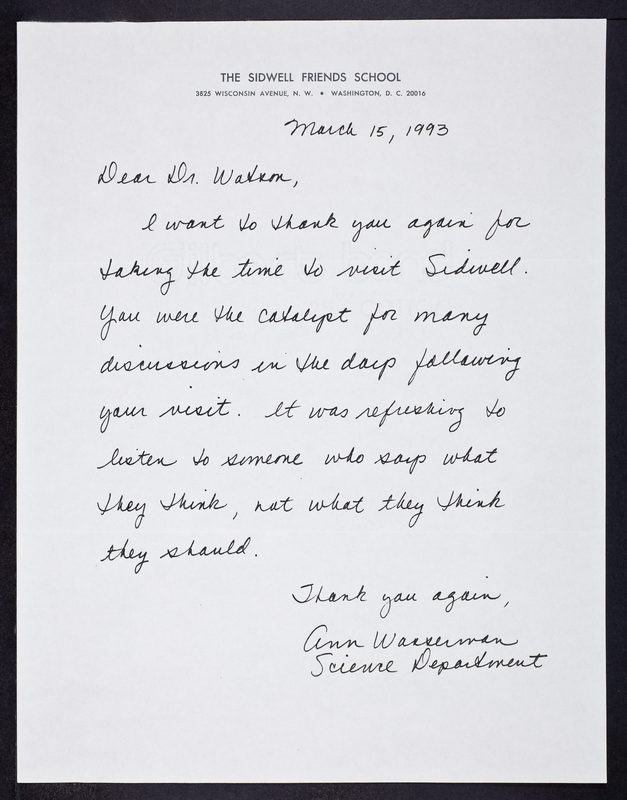 THE SIDWELL FRIENDS SCHOOL
3825 WISCONSIN AVENUE, N. W. • WASHINGTON, D. C. 20016
March 15, 1993
Dear Dr. Watson,
I want to thank you again for
taking the time to visit Sidwell.
You were the catalyst for many
discussions in the days following
your visit. It was refreshing to
listen to someone who says what
they think, not what they think
they should.
Thank you again,
Ann Wasserman
Science Department